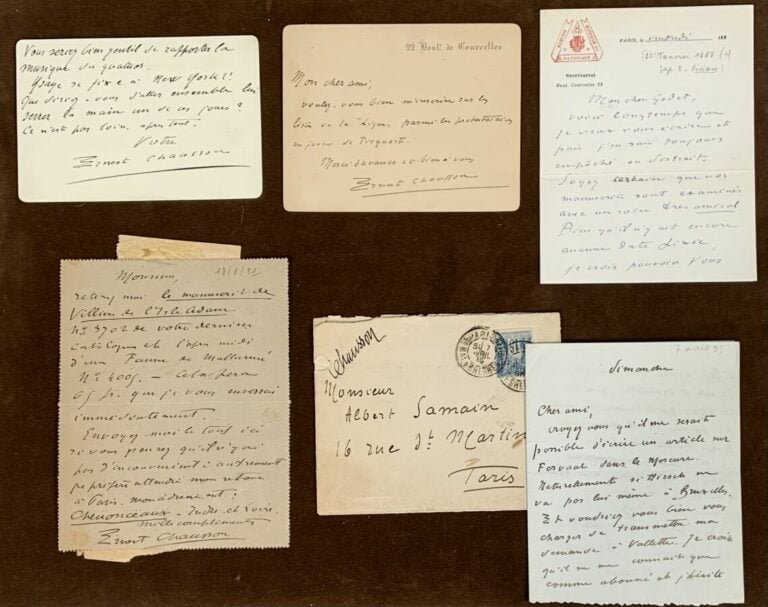 Vous serez bien gentil de rapporter la
musique du quatuor.
Ysaye se fixe à New York!!
Que diriez-vous d'aller ensemble lui
serrer la main un de ces jours?
Ce n'est pas loin, après tout.
Votre
Ernest Chausson
22 Boulᵈ de Courcelles
Mon cher ami,
voulez-vous bien m'inscrire sur les
listes de la Ligue, parmi les protestataires
en faveur de Picquart.
Merci d'avance et bien à vous
Ernest Chausson
NATIONALE
PARIS, le vendredi 188
Secrétariat
Boul. Courcelles 22
Mon cher Godet,
voici longtemps que
je veux vous écrire et
puis j'en suis toujours
empêché ou distrait.
Soyez certain que vos
manuscrits sont examinés
avec un soin très amical
Bien qu'il n'y ait encore
aucune date fixée,
je crois pouvoir vous
Monsieur,
retenez moi le manuscrit de
Villiers de l'Isle Adam
Nº 3702 de votre dernier
catalogue et l'après midi
d'un Faune de Mallarmé
Nº 4005. - Cela fera
65 fr. que je vous enverrai
immédiatement.
Envoyez moi le tout ici
si vous pensez qu'il n'y ait
pas d'inconvenient à autrement
je préfère attendre mon retour
à Paris. mon adresse est:
Chenonceaux - Indre et Loire.
mille compliments
Ernest Chausson
Chausson
PARIS
Monsieur
Albert Samain
16 rue Sᵗ Martin
Paris
7 avril 95
dimanche
Cher ami,
croyez vous qu'il me serait
possible d'écrire un article sur
Fervaal dans le Mercure.
Naturellement si Hirsch ne
va pas lui même à Bruxelles.
Et voudriez vous bien vous
charger de transmettre ma
demande à Vallette. Je crois
qu'il ne me connait que
comme abonné et j'hésite